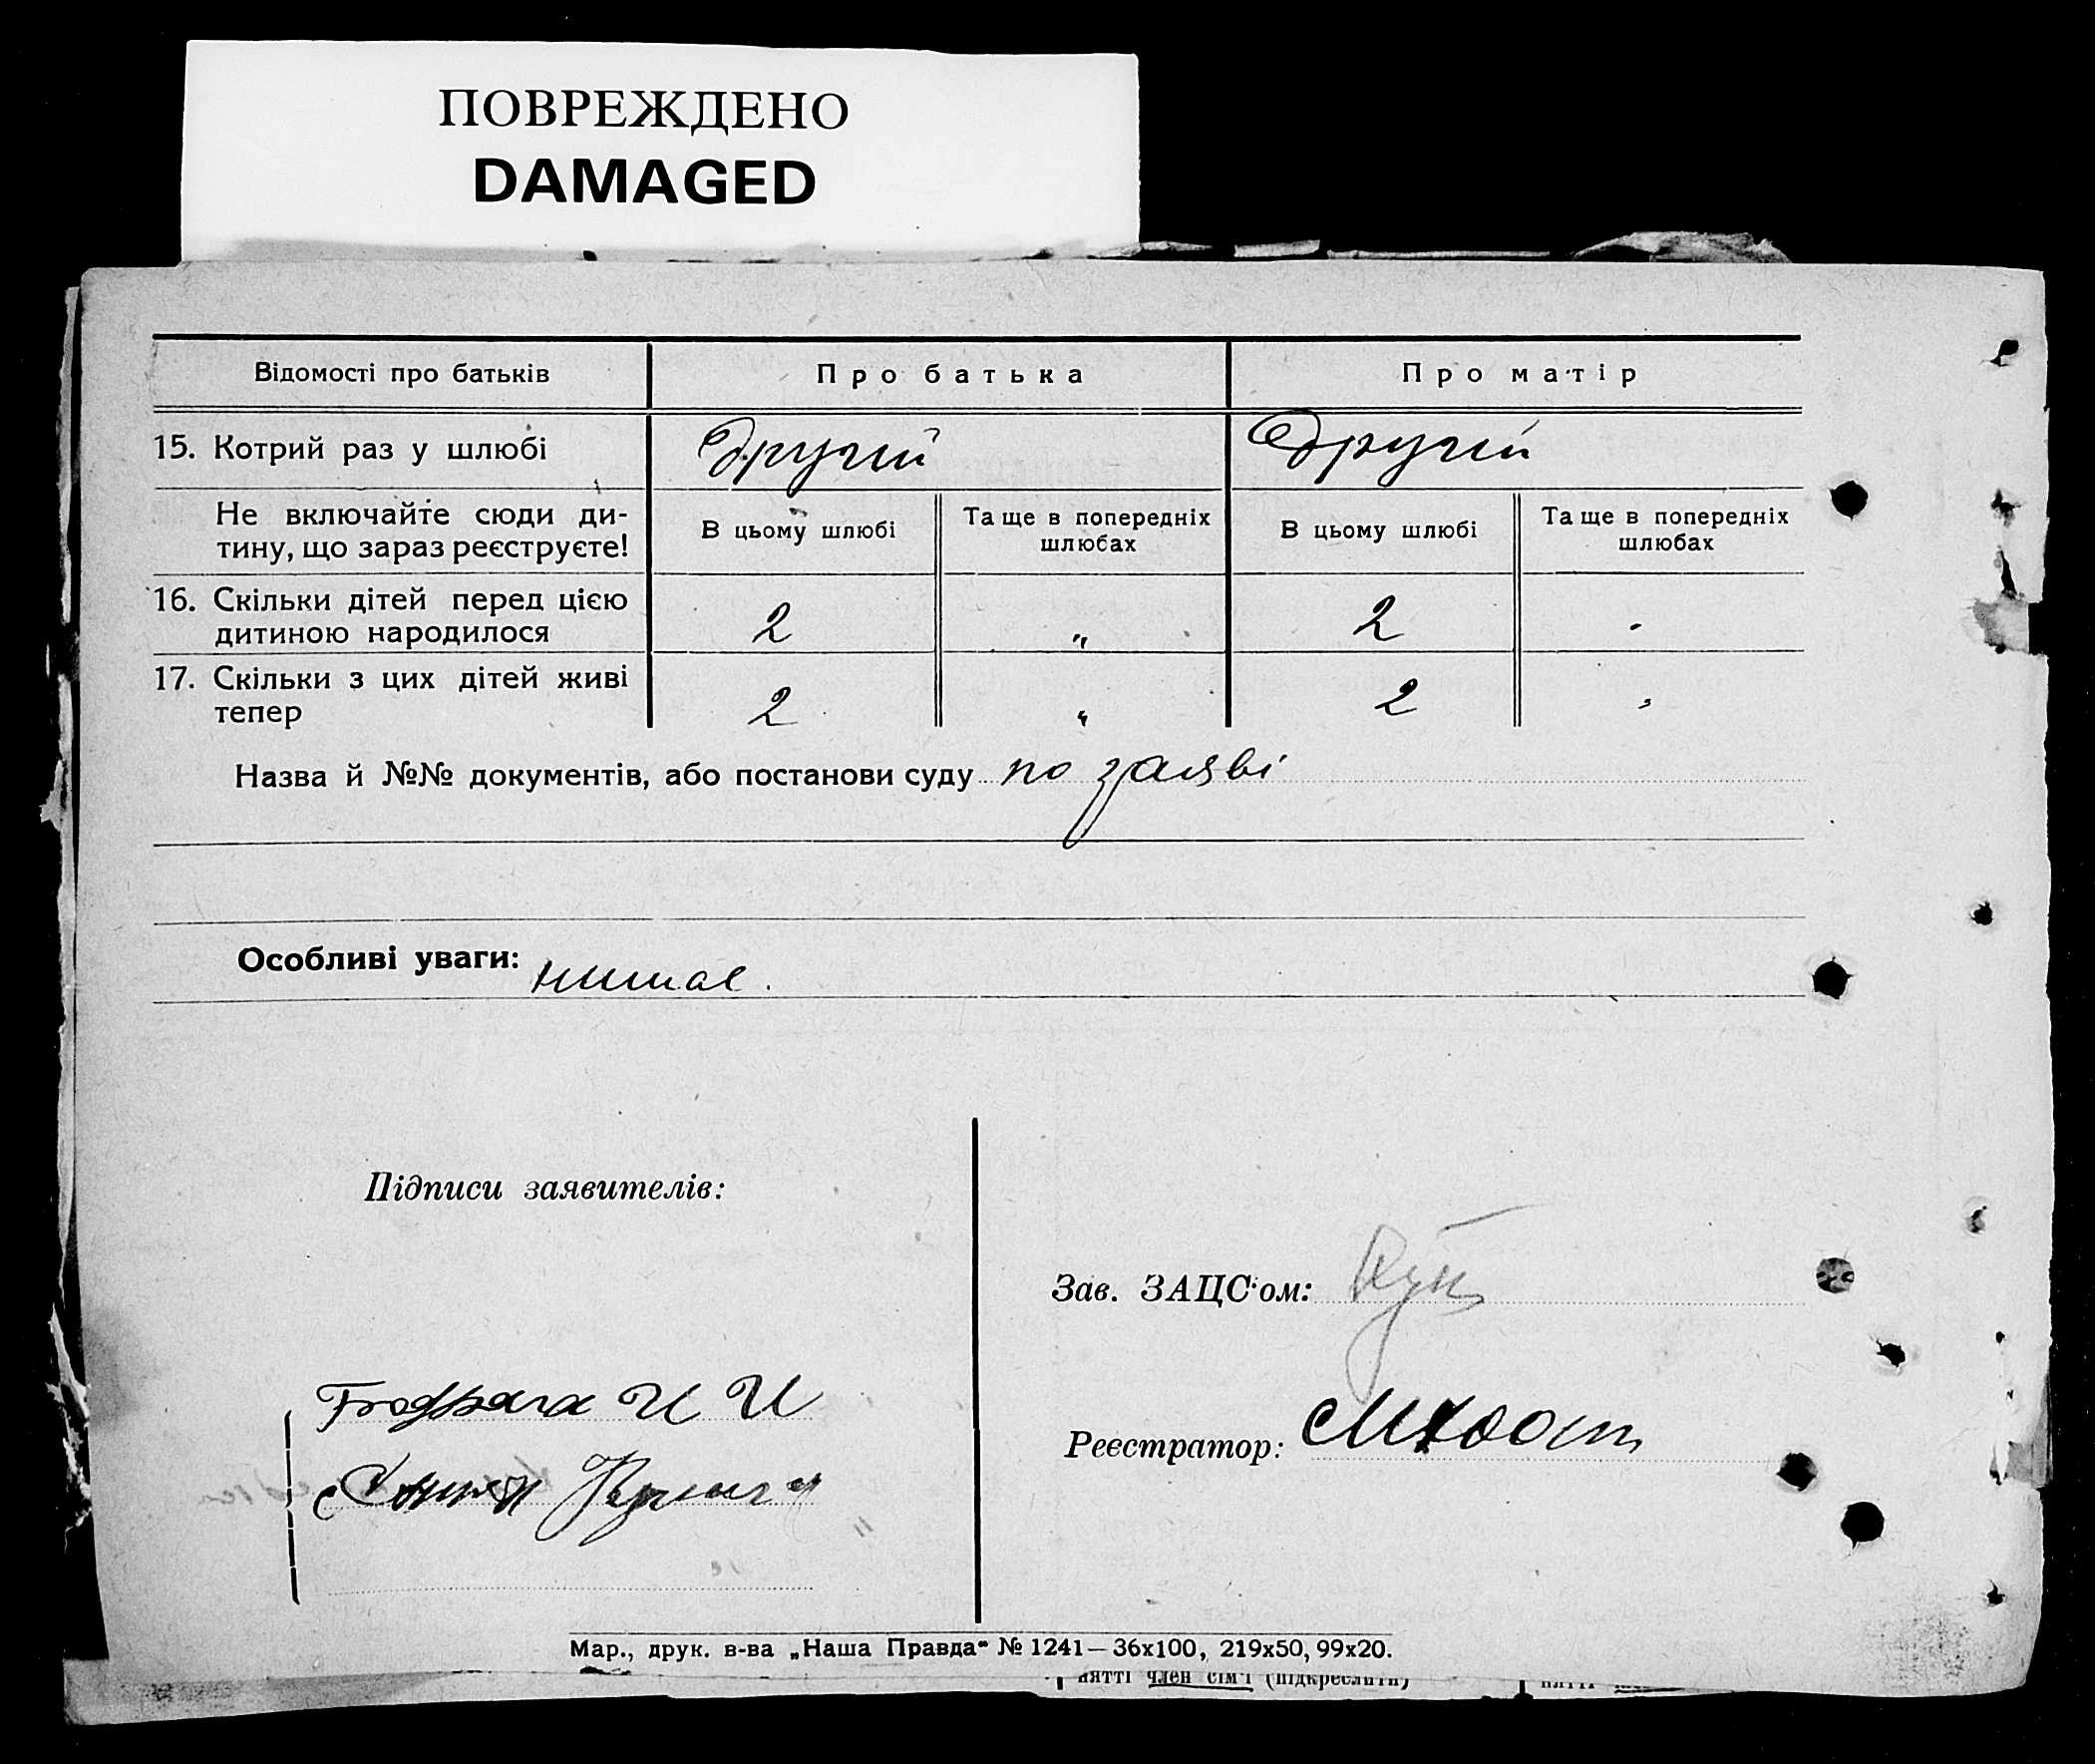 ПОВРЕЖДЕНО
DAMAGED
Відомості про батьків Про батька Про матір
15. Котрий раз у шлюбі другий другий
Не включайте сюди ди-
тину, що зараз реєструєте!
В цьому шлюбі Та ще в попередніх шлюбах В цьому шлюбі Та ще в попередніх шлюбах
16. Скільки дітей перед цією
дитиною народилося 2 „ 2 -
17. Скільки з цих дітей живі
тепер 2 „ 2 „
Назва й №№ документів, або постанови суду по заяві
Особливі уваги: нимае.
Підписи заявителів:
Зав. ЗАЦС'ом:
И И
Реєстратор:
Мар., друк. в-ва „Наша Правда“ № 1241—36х100, 219х50, 99х20.
нятті член сім'ї (підкреслити)